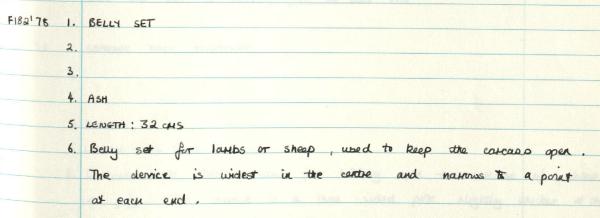 F182'78 1. BELLY SET
2.
3.
4. ASH
5. LENGTH : 32 CMS
6. Belly set for lambs or sheep, used to keep the carcass open.
The device is widest in the centre and narrows to a point
at each end.